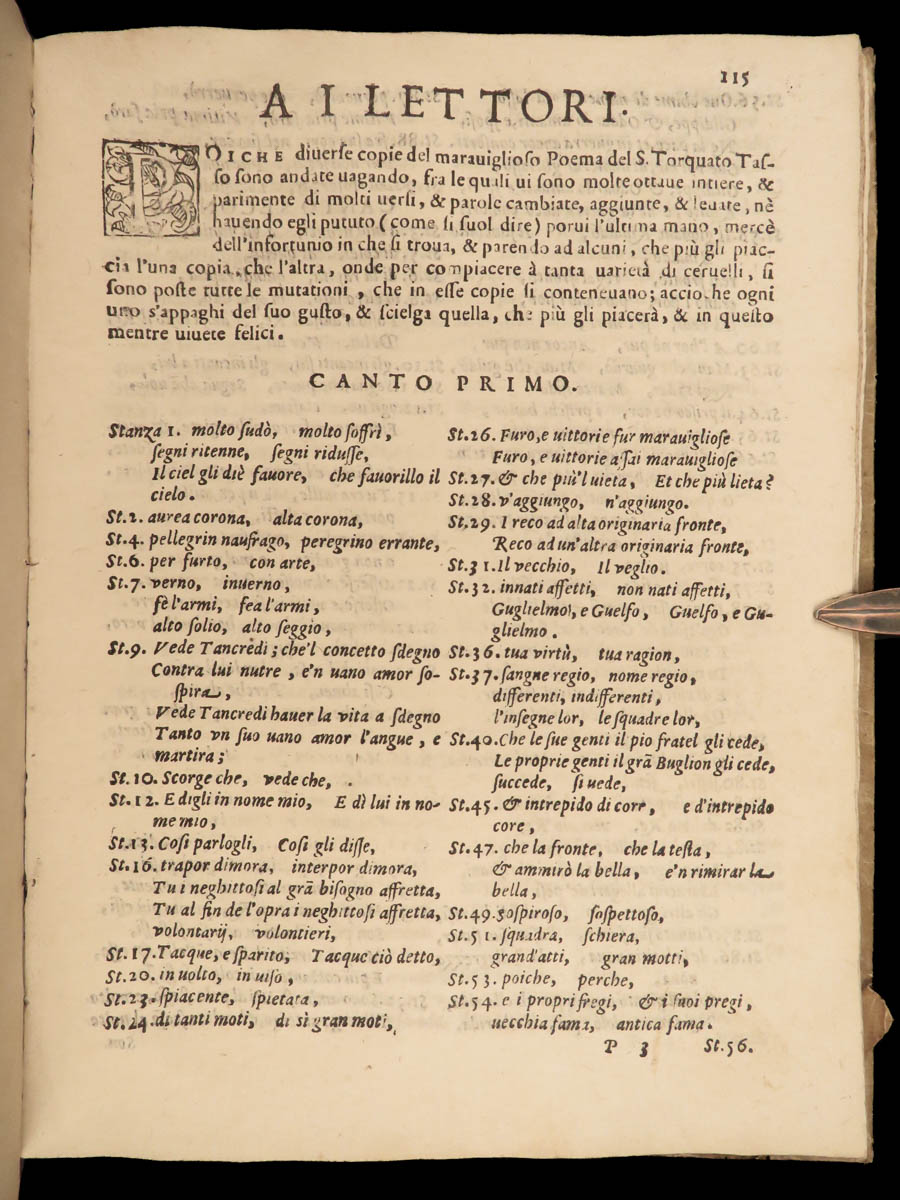 115
A I LETTORI.
POICHE diuerſe copie del marauiglioſo Poema del S. Torquato Taſ-
ſo ſono andate uagando, fra le quali ui ſono molte ottaue intiere, &
parimente di molti uerſi, & parole cambiate, aggiunte, & leuate, nè
hauendo egli pututo (come ſi ſuol dire) porui l'ultima mano, mercè
dell'infortunio in che ſi troua, & parendo ad alcuni, che più gli piac-
cia l'una copia, che l'altra, onde per compiacere à tanta uarietà di ceruelli, ſi
ſono poſte tutte le mutationi, che in eſſe copie ſi conteneuano; accioche ogni
uno s'appaghi del ſuo guſto, & ſcielga quella, che più gli piacerà, & in queſto
mentre uiuete felici.
CANTO PRIMO.
Stanza 1. molto ſudò, molto ſoffrì,
ſegni ritenne, ſegni riduſſe,
Il ciel gli diè fauore, che fauorillo il
cielo.
St.2. aurea corona, alta corona,
St.4. pellegrin naufrago, peregrino errante,
St.6. per furto, con arte,
St.7. verno, inuerno,
fè l'armi, fea l'armi,
alto ſolio, alto ſeggio,
St.9. Vede Tancredi; che'l concetto ſdegno
Contra lui nutre, e'n uano amor ſo-
ſpira,
Vede Tancredi hauer la vita a ſdegno
Tanto vn ſuo uano amor l'angue, e
martira;
St.10. Scorge che, vede che,
St.12. E digli in nome mio, E dì lui in no-
me mio,
St.13. Coſi parlogli, Coſi gli diſſe,
St.16. trapor dimora, interpor dimora,
Tu i neghittoſi al grã biſogno affretta,
Tu al fin de l'opra i neghittoſi affretta,
volontarij, volontieri,
St.17. Tacque, e ſparito, Tacque ciò detto,
St.20. in uolto, in uiſo,
St.23. ſpiacente, ſpietata,
St.24. di tanti moti, di sì gran moti,
St.26. Furo, e uittorie fur marauiglioſe
Furo, e uittorie aſſai marauiglioſe
St.27. & che più'l uieta, Et che più lieta?
St.28. v'aggiungo, n'aggiungo.
St.29. I reco ad alta originaria fronte,
Reco ad un'altra originaria fronte,
St.31. Il vecchio, Il veglio.
St.32. innati affetti, non nati affetti,
Guglielmo, e Guelfo, Guelfo, e Gu-
glielmo.
St.36. tua virtù, tua ragion,
St.37. ſangue regio, nome regio,
differenti, indifferenti,
l'inſegne lor, le ſquadre lor,
St.40. Che le ſue genti il pio fratel gli cede,
Le proprie genti il grã Buglion gli cede,
ſuccede, ſi uede,
St.45. & intrepido di core, e d'intrepido
core,
St.47. che la fronte, che la teſta,
& ammirò la bella, e'n rimirar la
bella,
St.49. ſoſpiroſo, ſoſpettoſo,
St.51. ſquadra, ſchiera,
grand'atti, gran motti,
St.53. poiche, perche,
St.54. e i propri fregi, & i ſuoi pregi,
uecchia fama, antica fama.
P 3 St.56.